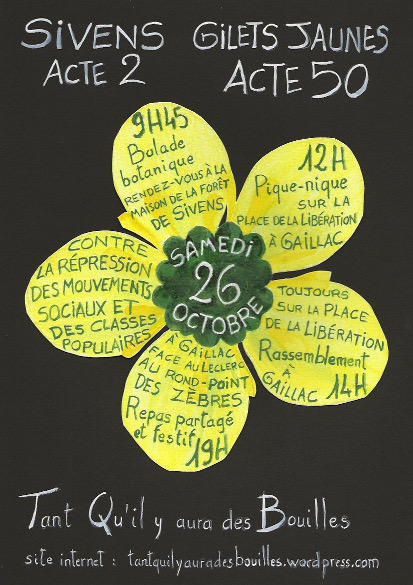 SIVENS GILETS JAUNES
ACTE 2 ACTE 50
9H45
Balade
botanique
RENDEZ-VOUS À LA
MAISON DE LA FORÊT
DE SIVENS
12H
Pique-nique
SUR LA
PLACE DE LA LIBÉRATION
À GAILLAC
SAMEDI
26
OCTOBRE
CONTRE
LA RÉPRESSION
DES MOUVEMENTS
SOCIAUX ET
DES CLASSES
POPULAIRES
TOUJOURS
SUR LA PLACE
DE LA LIBÉRATION
Rassemblement
À
GAILLAC 14H
À GAILLAC
FACE AU LECLERC
AU ROND-POINT
DES ZÈBRES
Repas partagé
et festif
19H
Tant Qu'il y aura des Bouilles
site internet : tantquilyauradesbouilles.wordpress.com